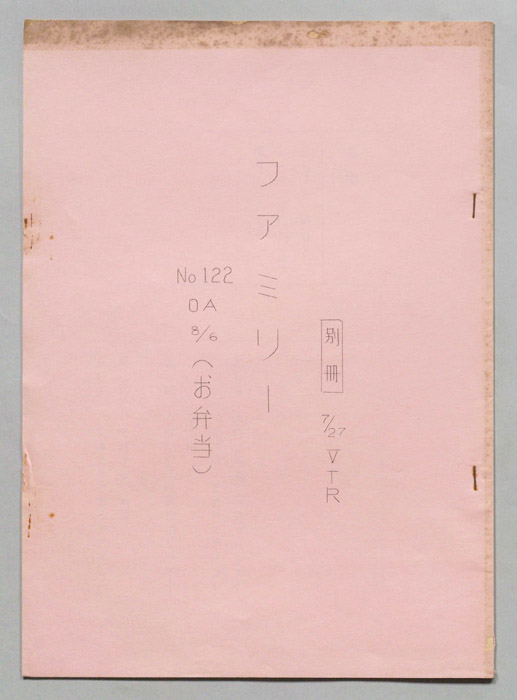 別冊 7/27 VTR
ファミリー
No 122 OA 8/6 (お弁当)